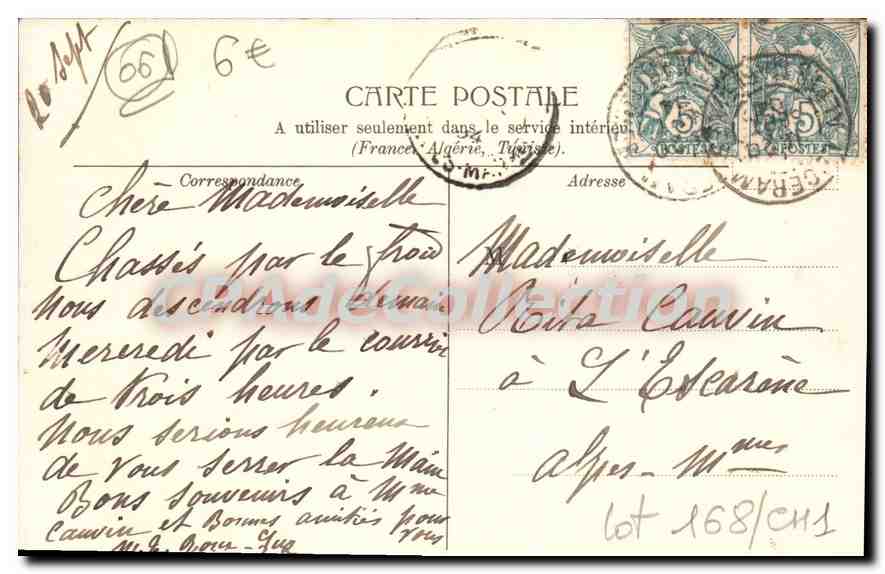 20 Sept
66
6€
CARTE POSTALE
A utiliser seulement dans le service intérieur
(France, Algérie, Tunisie).
Correspondance
Adresse
5 5
POSTES POSTES
Chère Mademoiselle
Chassés par le froid
nous descendrons demain
Mercredi par le courrier
de trois heures.
Nous serions heureux
de vous serrer la main
Bons souvenirs à Mme
Cauvin et Bonnes amitiés pour
vous
Mademoiselle
Rita Cauvin
à L'Escarène
Alpes-Mmes
lot 168/CH1
CPAdeCollection